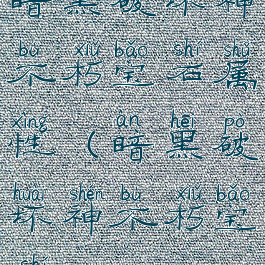 暗黑破坏神
bù xiǔ bǎo shí shǔ
不朽宝石属
xìng àn hēi pò
性（暗黑破
huài shén bù xiǔ bǎo
坏神不朽宝
shí